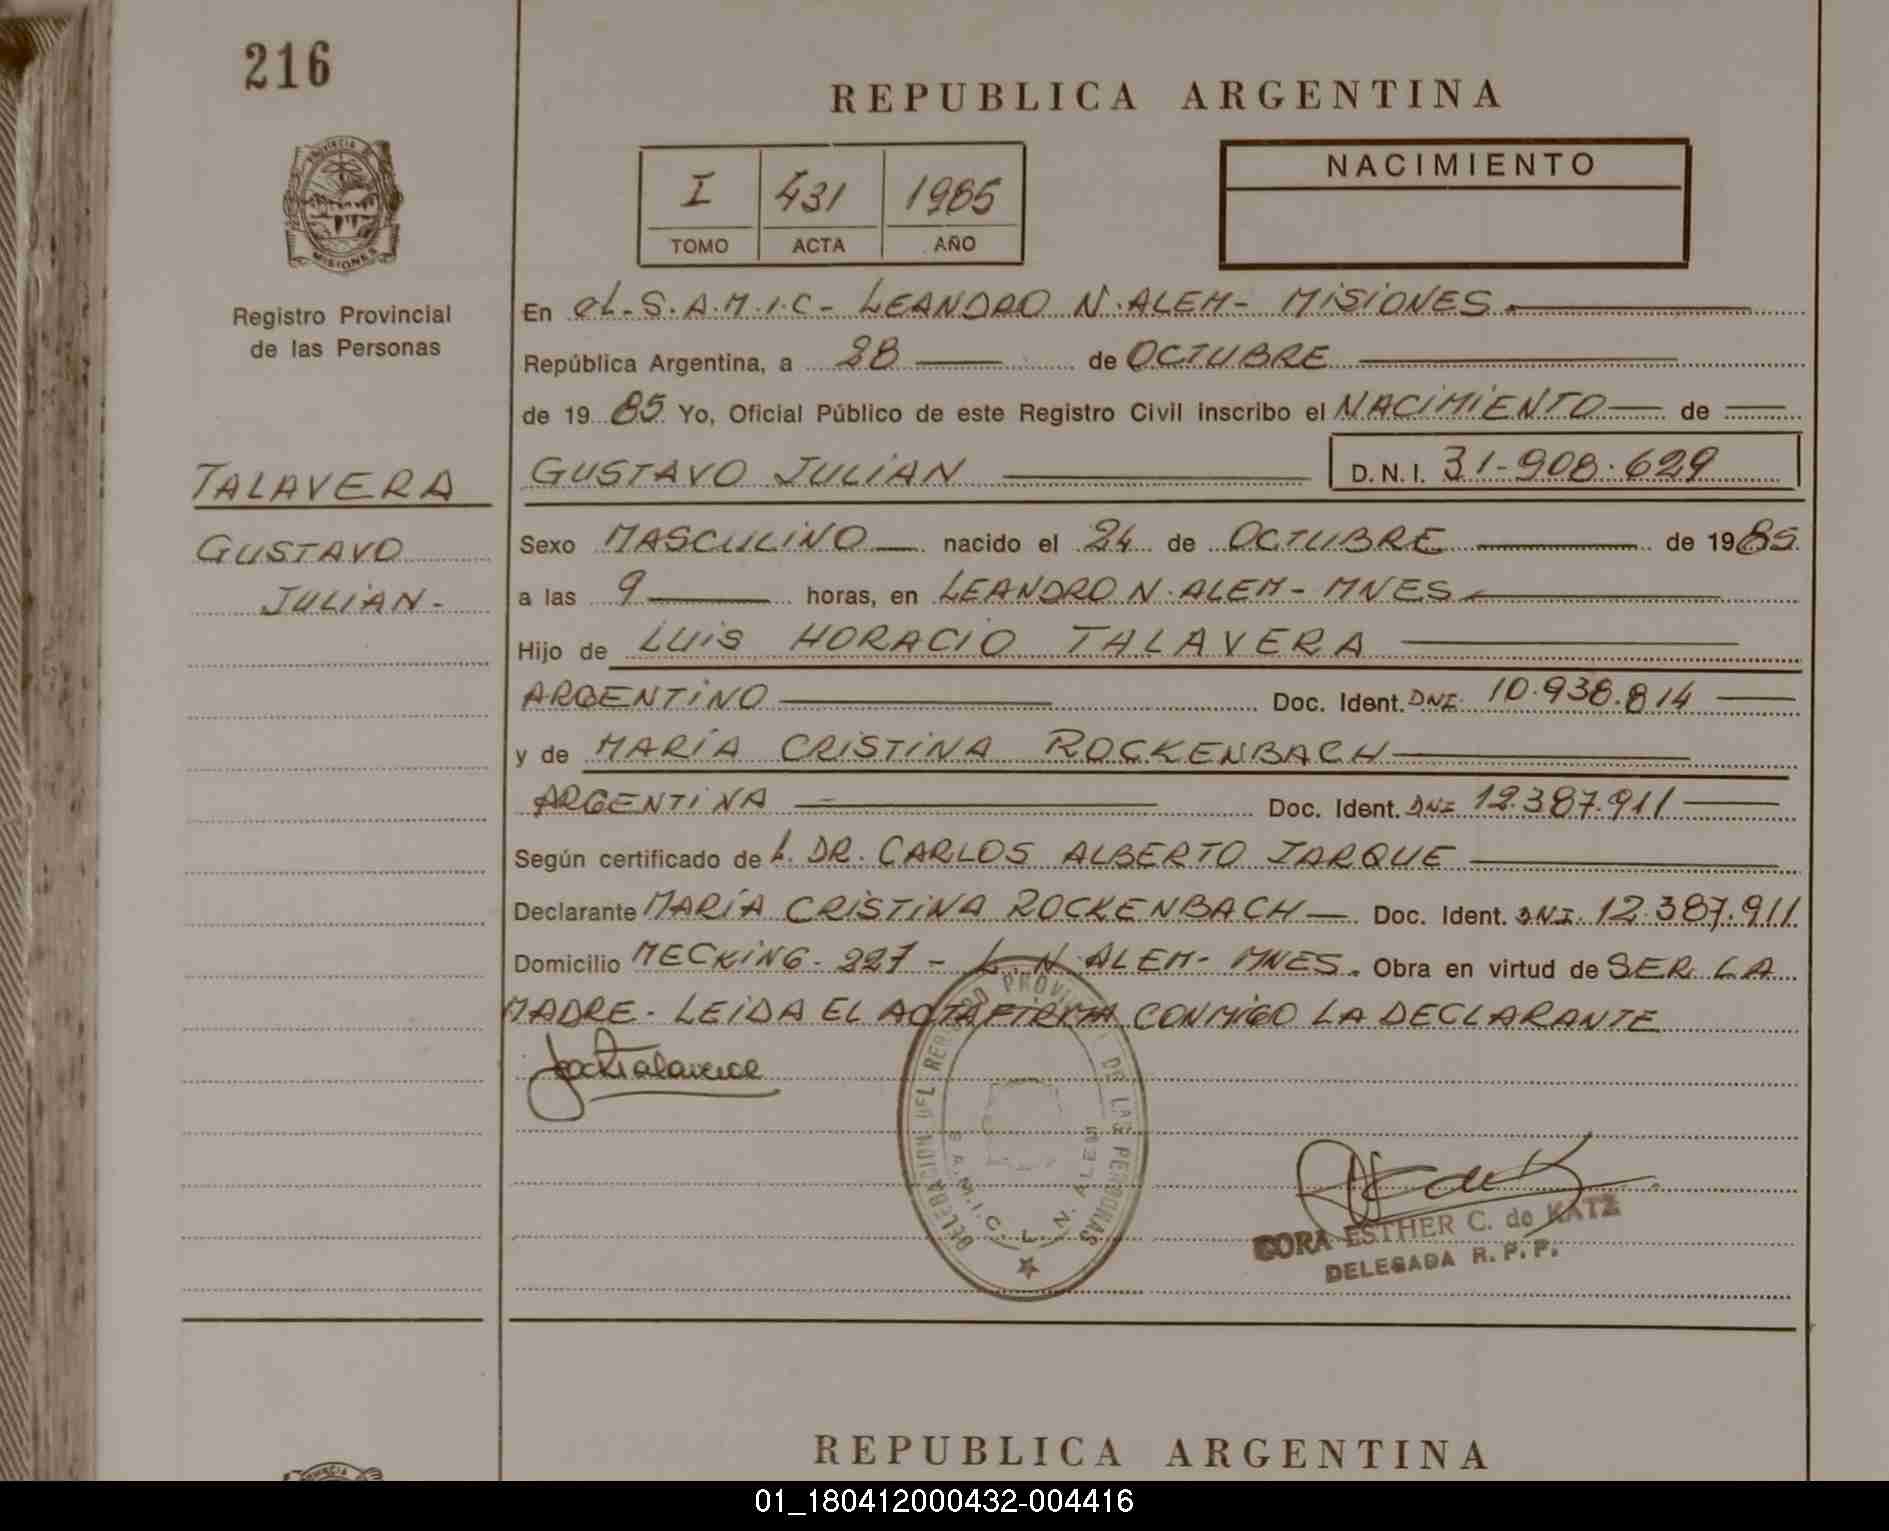 216
REPUBLICA ARGENTINA
PROVINCIA DE
MISIONES
I 431 1985
TOMO ACTA AÑO
NACIMIENTO
Registro Provincial
de las Personas
En el S.A.M.I.C - LEANDRO N. ALEM - MISIONES
República Argentina, a 28 de OCTUBRE
de 1985 Yo, Oficial Público de este Registro Civil inscribo el NACIMIENTO de
TALAVERA
GUSTAVO
JULIAN -
GUSTAVO JULIAN D.N.I. 31-908.629
Sexo MASCULINO nacido el 24 de OCTUBRE de 1985
a las 9 horas, en LEANDRO N. ALEM - MNES
Hijo de LUIS HORACIO TALAVERA
ARGENTINO Doc. Ident. DNI. 10.938.814
y de MARÍA CRISTINA ROCKENBACH
ARGENTINA Doc. Ident. DNI 12.387.911
Según certificado de L. DR. CARLOS ALBERTO JARQUE
Declarante MARÍA CRISTINA ROCKENBACH Doc. Ident. DNI. 12.387.911
Domicilio MECKING - 227 - L. N. ALEM - MNES. Obra en virtud de SER LA
MADRE - LEIDA EL ACTA FIRMA CONMIGO LA DECLARANTE
DELEGACION DEL REGISTRO PROVINCIAL DE LAS PERSONAS
S.A.M.I.C. L.N. ALEM
CORA ESTHER C. de KATZ
DELEGADA R.P.P.
REPUBLICA ARGENTINA
01_180412000432-004416